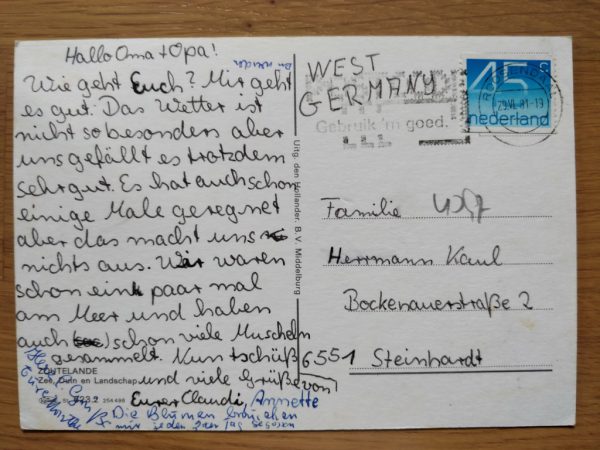 Hallo Oma + Opa!
Wie geht Euch? Mir geht
es gut. Das Wetter ist
nicht so besonders aber
uns gefällt es trotzdem
sehr gut. Es hat auch schon
einige Male geregnet
aber das macht uns
nichts aus. Wir waren
schon ein paar mal
am Meer und haben
auch schon viele Muscheln
gesammelt. Nun tschüß
und viele Grüße von
Eurer Claudi, Annette
Die Blumen
mir jeden Tag
ZOUTELANDE
Zee, Duin en Landschap
Uitg. den Hollander. B. V. Middelburg
WEST
GERMANY
Gebruik 'm goed.
45 c
nederland
Familie
Herrmann Kaul
Bockenauerstraße 2
6551
Steinhardt